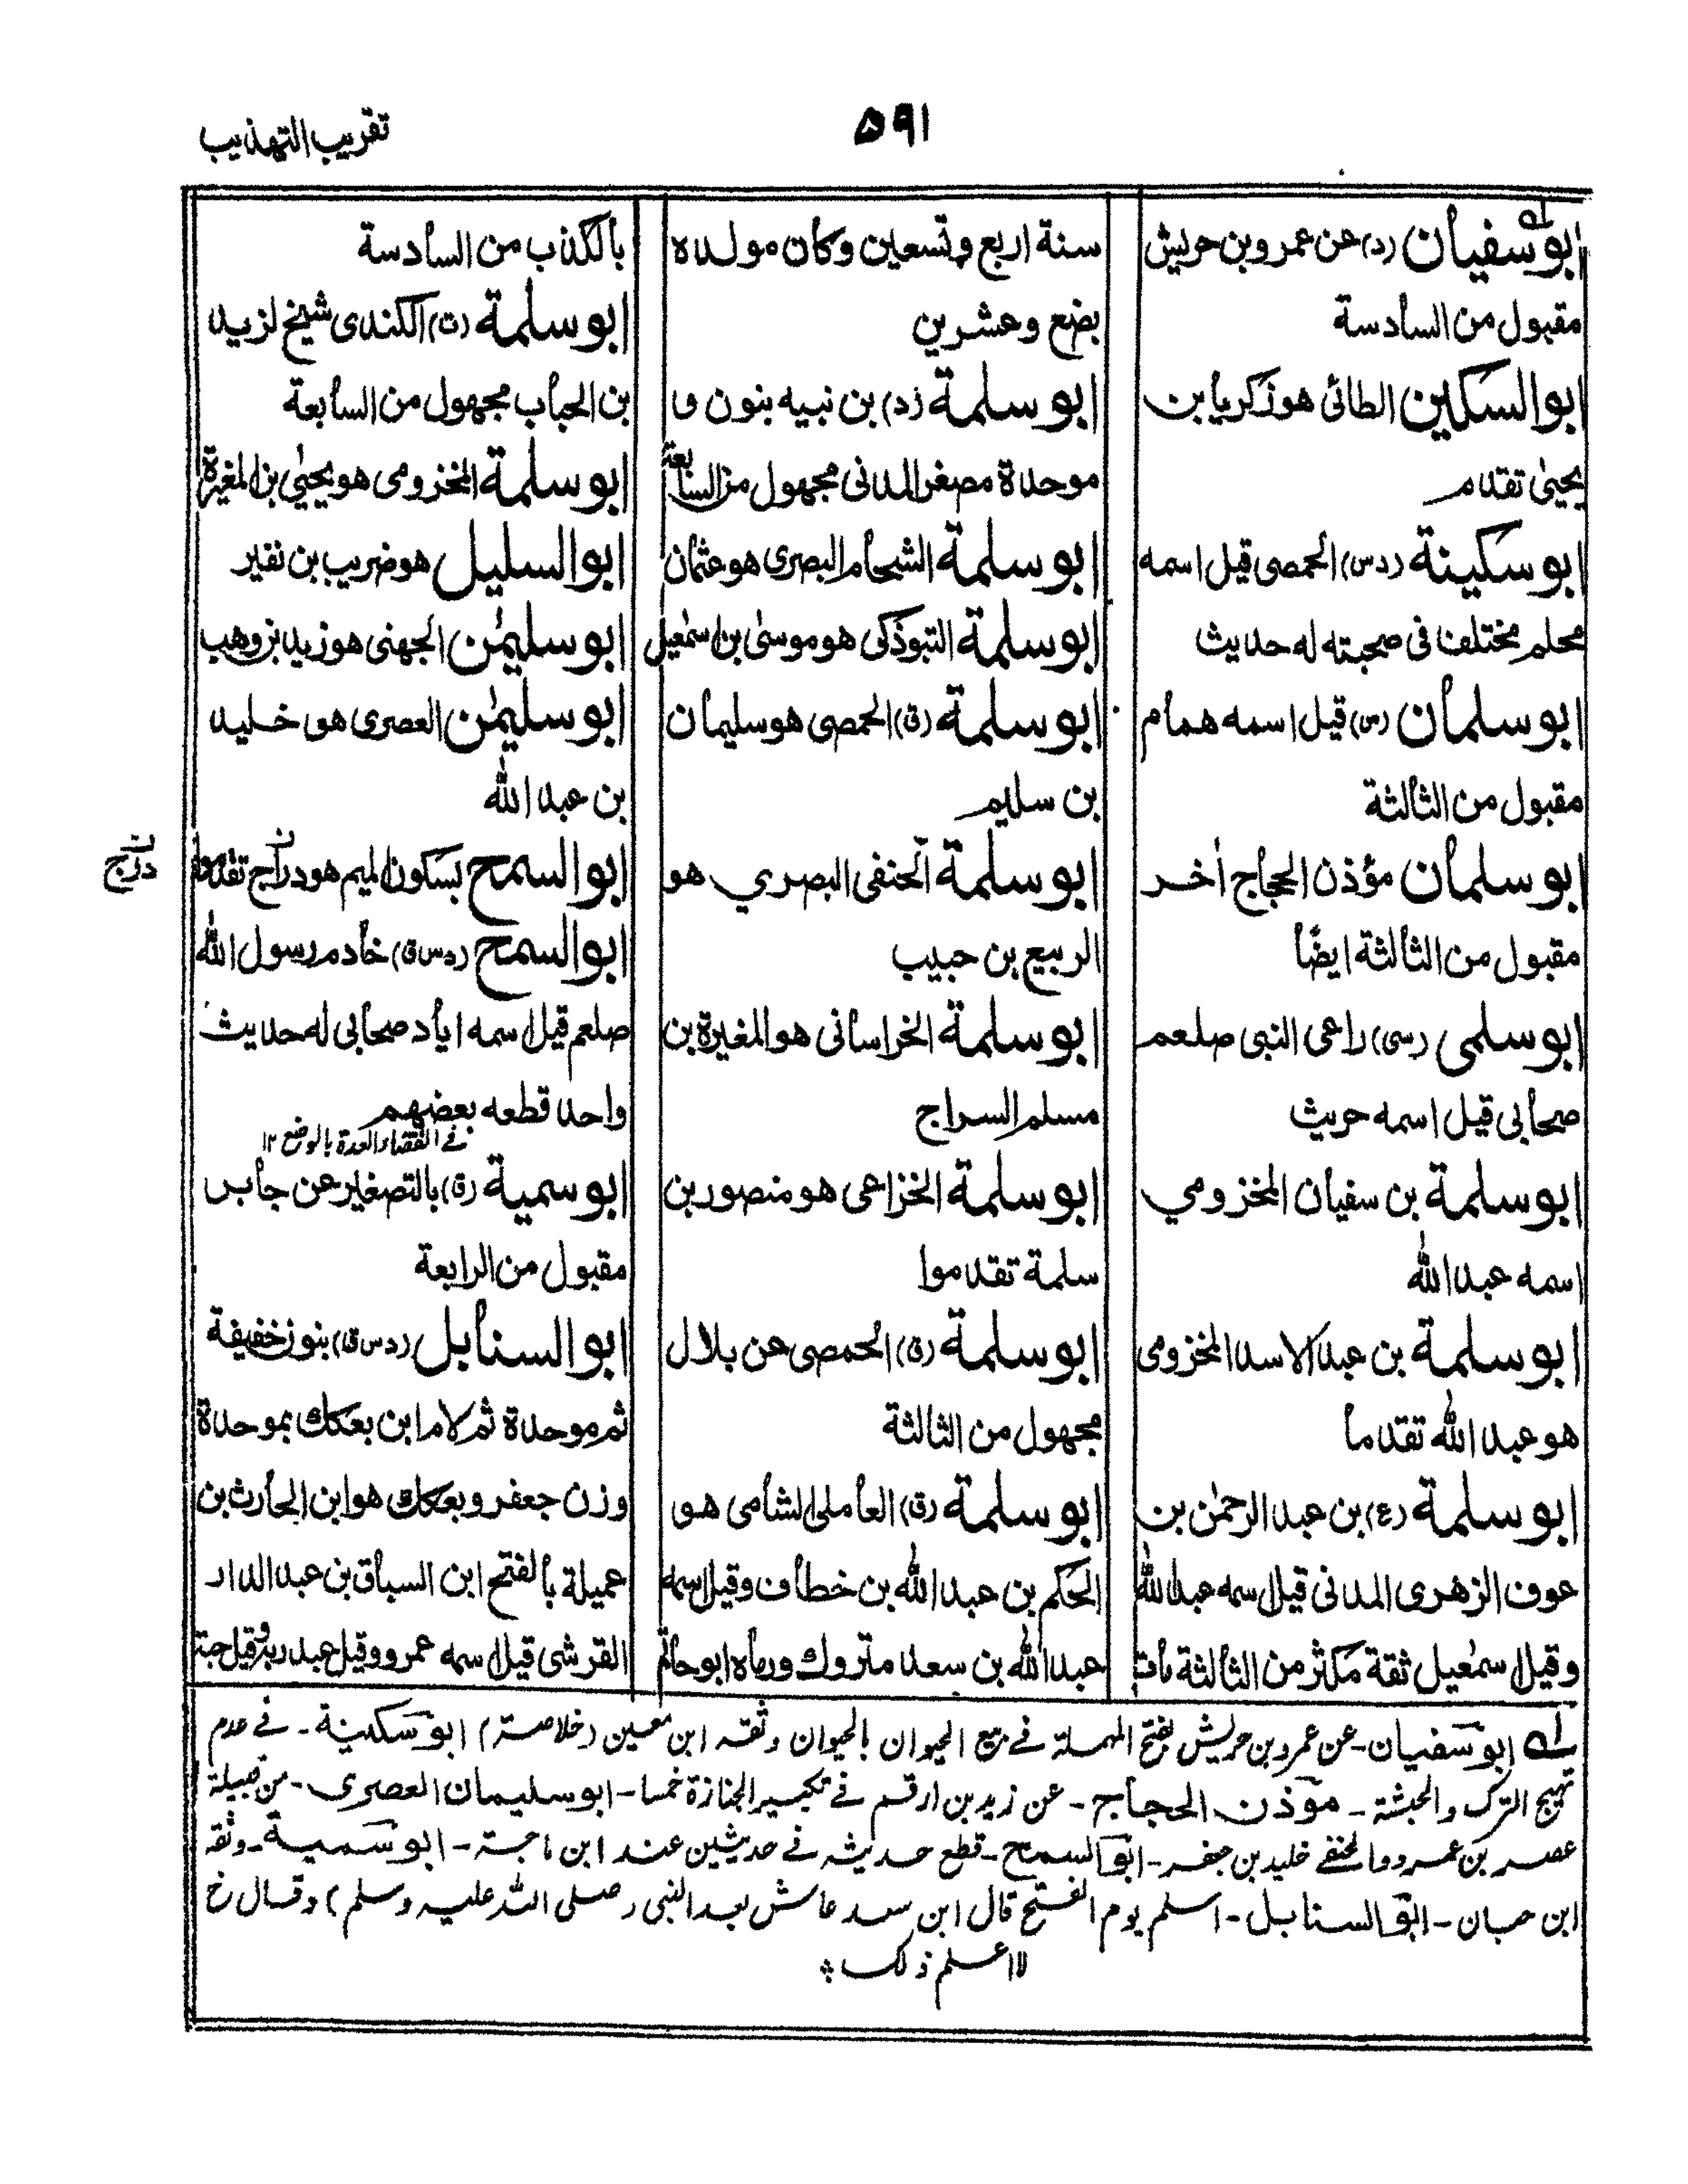 تقریب التهذیب
۵۹۱
ابو سفیان (د) عن عمرو بن حریش
مقبول من السادسة
ابو السکین الطائی هو زکریا بن
یحیی تقدم
ابو سکینة (د س) الحمصی قیل اسمه
محلم مختلف فی صحبته له حدیث
ابو سلمان (س) قیل اسمه همام
مقبول من الثالثة
ابو سلمان مؤذن الحجاج اٰخر
مقبول من الثالثة ایضًا
ابو سلمی (سی) راعی النبی صلعم
صحابی قیل اسمه حریث
ابو سلمة بن سفیان المخزومي
اسمه عبد الله
ابو سلمة بن عبد الاسد المخزومی
هو عبد الله تقدما
ابو سلمة (ع) بن عبد الرحمٰن بن
عوف الزهری المدنی قیل اسمه عبد الله
وقیل اسمٰعیل ثقة مکثر من الثالثة مات
سنة اربع وتسعین وکان مولده
بضع وعشرین
ابو سلمة (د) بن نبیه بنون و
موحدة مصغر المدنی مجهول من السابعة
ابو سلمة الشحام البصری هو عثمان
ابو سلمة التبوذکی هو موسیٰ بن اسمٰعیل
ابو سلمة (ق) الحمصی هو سلیمان
بن سلیم
ابو سلمة الحنفی البصري هو
الربیع بن حبیب
ابو سلمة الخراسانی هو المغیرة بن
مسلم السراج
ابو سلمة الخزاعی هو منصور بن
سلمة تقدموا
ابو سلمة (ق) الحمصی عن بلال
مجهول من الثالثة
ابو سلمة (ق) العاملی الشامی هو
الحکم بن عبد الله بن خطاف وقیل اسمه
عبد الله بن سعد متروك ورماه ابو حاتم
بالکذب من السادسة
ابو سلمة (ت) الکندی شیخ لزید
بن الحباب مجهول من السابعة
ابو سلمة المخزومی هو یحیٰی بن المغیرة
ابو السلیل هو ضریب بن نفیر
ابو سلیمٰن الجهنی هو زید بن وهب
ابو سلیمٰن العصری هو خلید
بن عبد الله
ابو السمح بسکون المیم هو دراج تقدموا
دراج
ابو السمح (د س ق) خادم رسول الله
صلعم قیل اسمه ایاد صحابی له حدیث
واحد قطعه بعضهم
ابو سمیة (ق) بالتصغیر عن جابر
مقبول من الرابعة
ابو السنابل (د س ق) بنون خفیفة
ثم موحدة ثم لام ابن بعکك بموحدة
وزن جعفر وبعکك هو ابن الحارث بن
عمیلة بالفتح ابن السباق بن عبد الدار
القرشی قیل اسمه عمرو وقیل عبد ربه وقیل حبة
له ابو سفیان - عن عمرو بن حریش بفتح المهملة فے بیع الحیوان بالحیوان وثقه ابن معین (خلاصة) ابو سکینة - فے عدم
تهیج الترك والحبشة - مؤذن الحجاج - عن زید بن ارقم فے تکبیر الجنازة خمسا - ابو سلیمان العصری - من قبیلة
عصر بن عمرو والحنفے خلید بن جعفر - ابو السمح - قطع حدیثه فے حدیثین عند ابن ماجة - ابو سمیة - وثقه
ابن حبان - ابو السنابل - اسلم یوم الفتح قال ابن سعد عاش بعد النبی (صلی الله علیه وسلم) وقال خ
لا اعلم ذلك